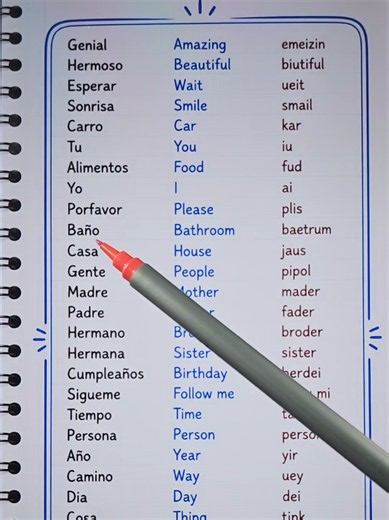 Genial Amazing emeizin
Hermoso Beautiful biutiful
Esperar Wait ueit
Sonrisa Smile smail
Carro Car kar
Tu You iu
Alimentos Food fud
Yo I ai
Porfavor Please plis
Baño Bathroom baetrum
Casa House jaus
Gente People pipol
Madre Mother mader
Padre fader
Hermano broder
Hermana Sister sister
Cumpleaños Birthday
Sigueme Follow me mi
Tiempo Time
Persona Person
Año Year yir
Camino Way uey
Dia Day dei
Cosa Thing tink